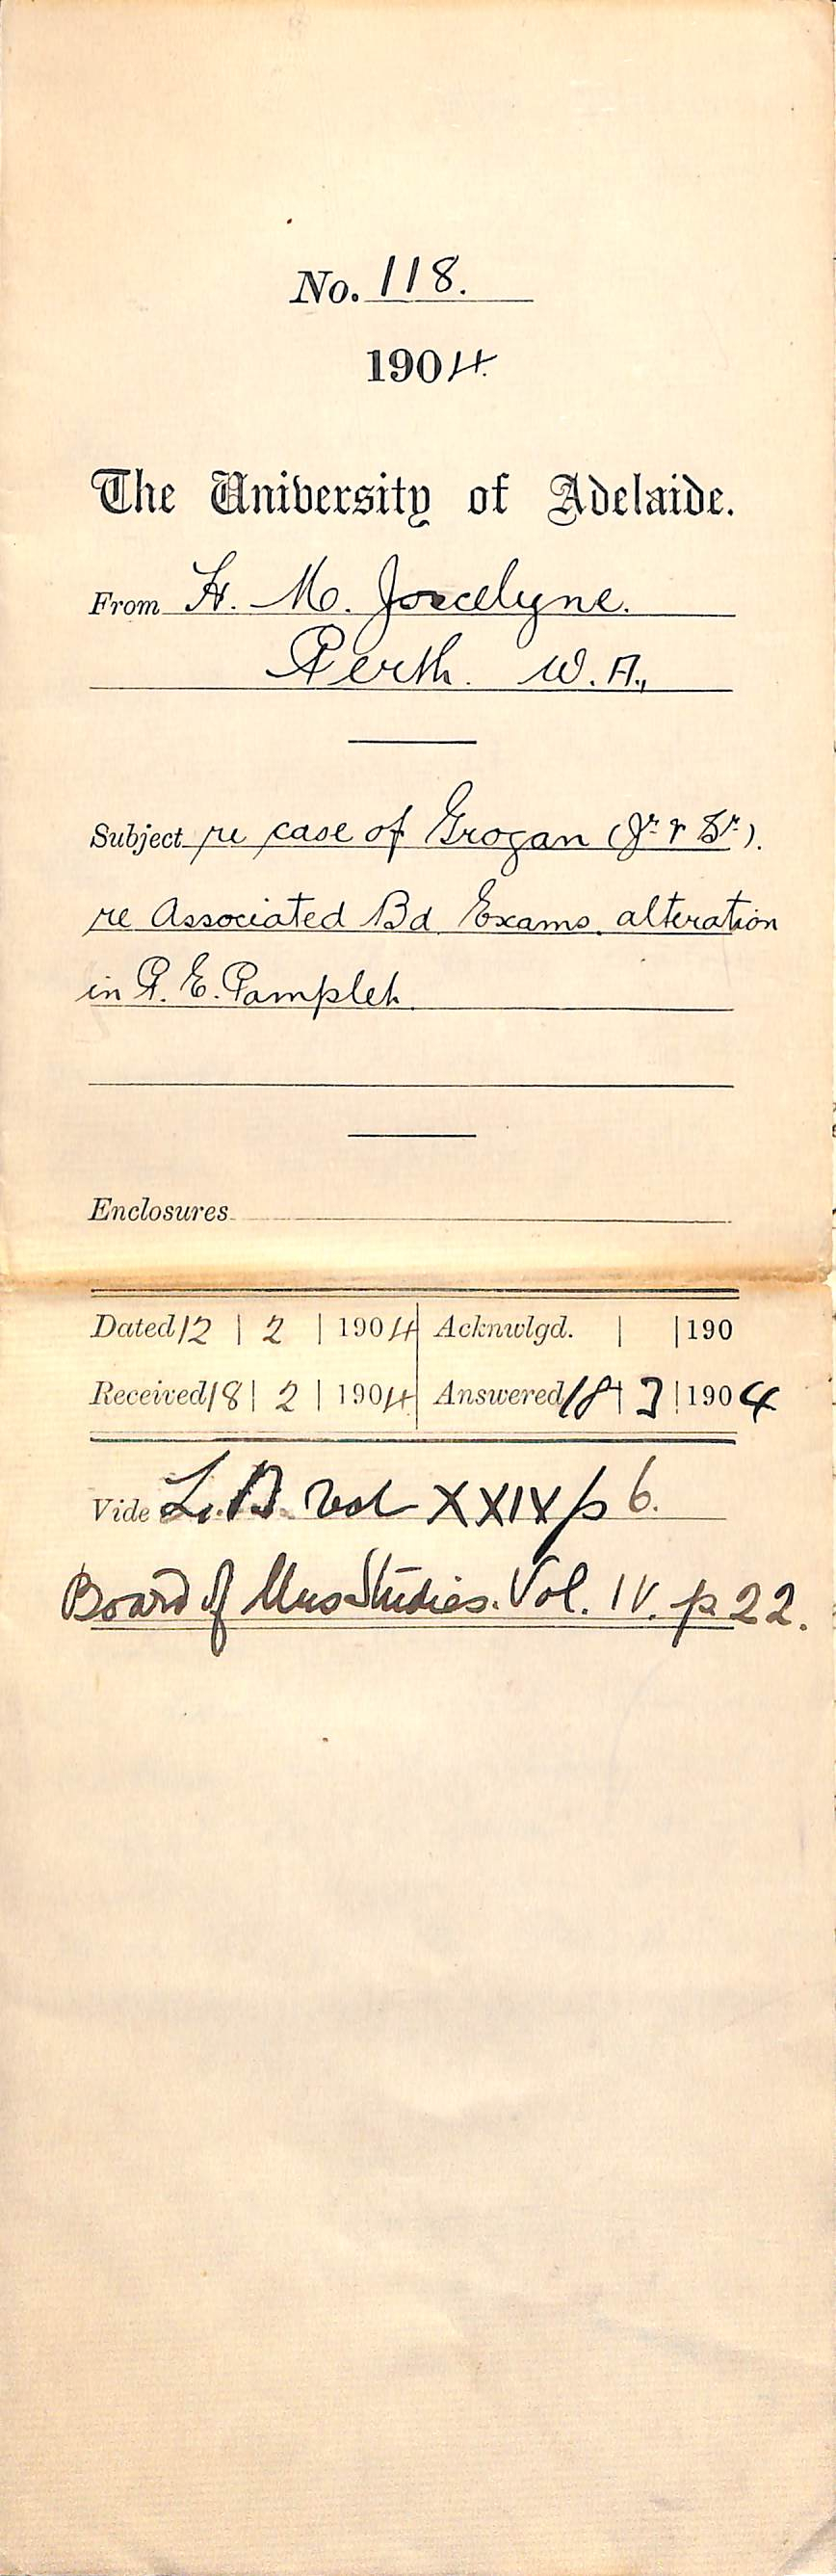 No. 118.
1904
The University of Adelaide.
From H. M. Joscelyne.
Perth. W.A.,
Subject re case of Grogan (Jr & Sr).
re Associated Bd Exams. alteration
in P. E. Pamphlet.
Enclosures
Dated 12 | 2 | 1904 Acknwlgd. | | 190
Received 18 | 2 | 1904 Answered 18 | 3 | 1904
Vide L.B. Vol XXIX p 6.
Board of Mus Studies. Vol. IV. p 22.